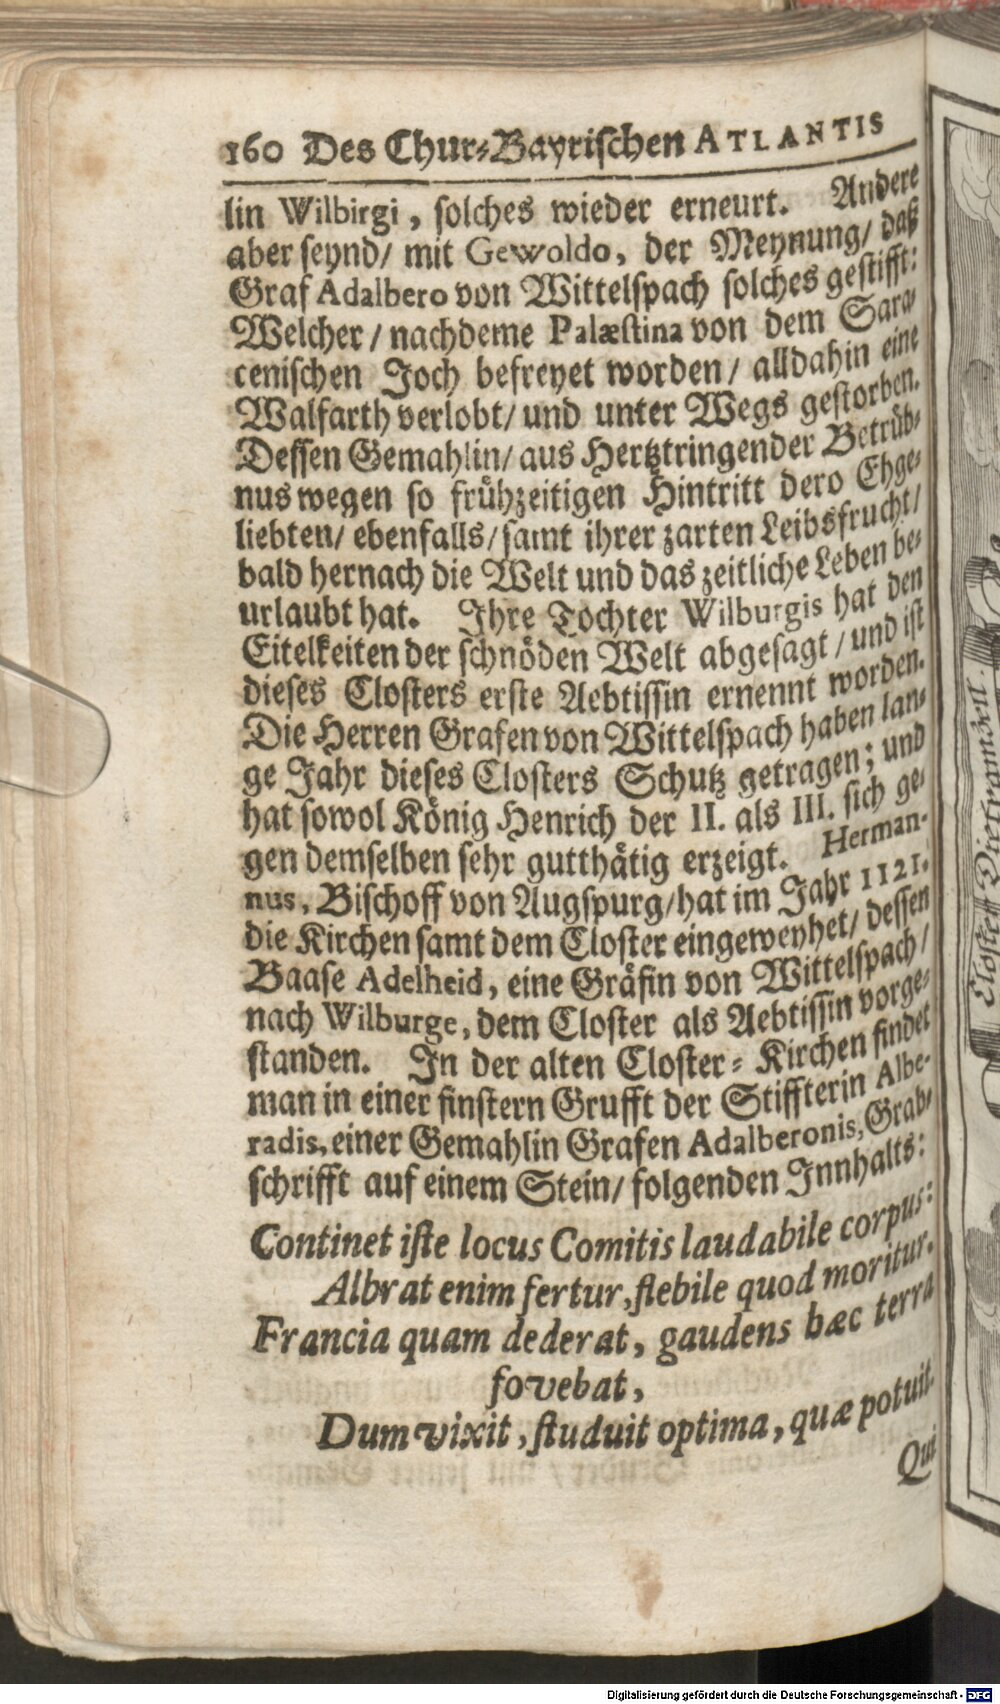 160 Des Chur-Bayrischen ATLANTIS
lin Wilbirgi, solches wieder erneurt. Andere
aber seynd/ mit Gewoldo, der Meynung/ daß
Graf Adalbero von Wittelspach solches gestifft:
Welcher/ nachdeme Palæstina von dem Sara-
cenischen Joch befreyet worden/ alldahin eine
Walfarth verlobt/ und unter Wegs gestorben.
Dessen Gemahlin/ aus Hertztringender Betrüb-
nus wegen so frühzeitigen Hintritt dero Ehge-
liebten/ ebenfalls/ samt ihrer zarten Leibsfrucht/
bald hernach die Welt und das zeitliche Leben be-
urlaubt hat. Ihre Tochter Wilburgis hat den
Eitelkeiten der schnöden Welt abgesagt/ und ist
dieses Closters erste Aebtissin ernennt worden.
Die Herren Grafen von Wittelspach haben lan-
ge Jahr dieses Closters Schutz getragen; und
hat sowol König Henrich der II. als III. sich ge-
gen demselben sehr gutthätig erzeigt. Herman-
nus, Bischoff von Augspurg/hat im Jahr 1121.
die Kirchen samt dem Closter eingeweyhet/ dessen
Baase Adelheid, eine Gräfin von Wittelspach/
nach Wilburge, dem Closter als Aebtissin vorge-
standen. In der alten Closter-Kirchen findet
man in einer finstern Grufft der Stiffterin Albe-
radis, einer Gemahlin Grafen Adalberonis, Grab-
schrifft auf einem Stein/ folgenden Innhalts:
Continet iste locus Comitis laudabile corpus:
Albrat enim fertur, flebile quod moritur.
Francia quam dederat, gaudens hæc terra
fovebat,
Dum vixit, studuit optima, quæ potuit.
Qui
Closter Dietramszell
Digitalisierung gefördert durch die Deutsche Forschungsgemeinschaft - DFG